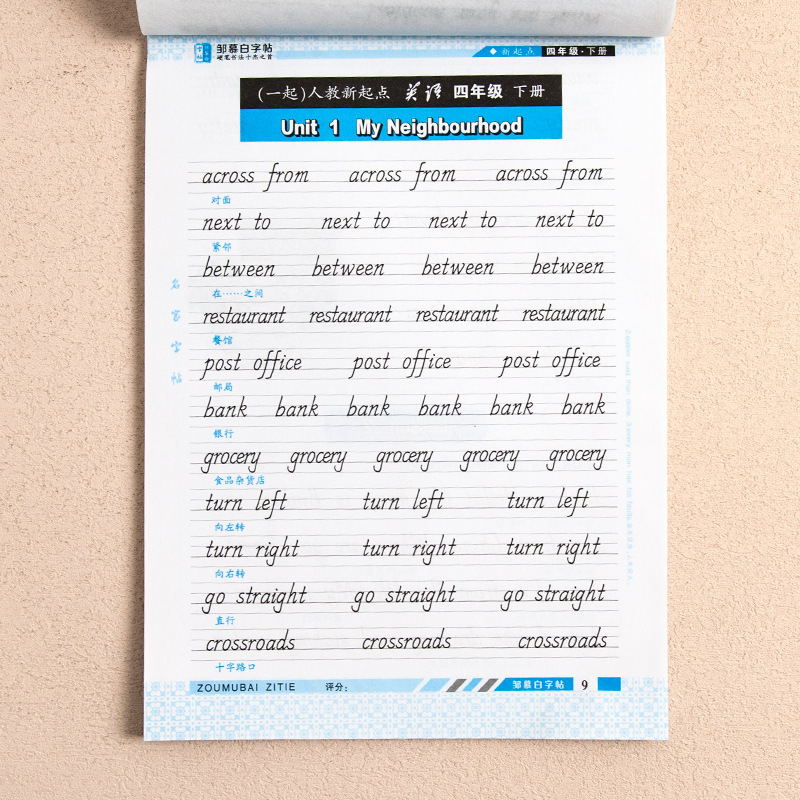 邹慕白字帖
硬笔书法十杰之首
新起点 四年级·下册
(一起)人教新起点 英语 四年级 下册
Unit 1 My Neighbourhood
across from across from across from
对面
next to next to next to next to
紧邻
between between between between
在……之间
restaurant restaurant restaurant restaurant
餐馆
post office post office post office
邮局
bank bank bank bank bank bank
银行
grocery grocery grocery grocery grocery
食品杂货店
turn left turn left turn left
向左转
turn right turn right turn right
向右转
go straight go straight go straight
直行
crossroads crossroads crossroads
十字路口
名家字帖
ZOUMUBAI ZITIE 评分: 邹慕白字帖 9